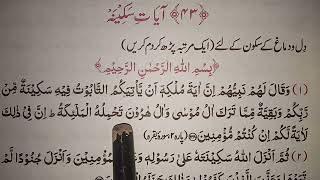 ﴿۴۳﴾ آیاتِ سکینہ
دل و دماغ کے سکون کے لئے (ایک مرتبہ پڑھ کر دم کریں)
﴿بِسْمِ اللهِ الرَّحْمٰنِ الرَّحِيْمِ﴾
(۱) وَقَالَ لَهُمْ نَبِيُّهُمْ اِنَّ اٰيَةَ مُلْكِهٖۤ اَنْ يَّاْتِيَكُمُ التَّابُوْتُ فِيْهِ سَكِيْنَةٌ مِّنْ
رَّبِّكُمْ وَبَقِيَّةٌ مِّمَّا تَرَكَ اٰلُ مُوْسٰى وَاٰلُ هٰرُوْنَ تَحْمِلُهُ الْمَلٰٓئِكَةُ ط اِنَّ فِيْ ذٰلِكَ
لَاٰيَةً لَّكُمْ اِنْ كُنْتُمْ مُّؤْمِنِيْنَ
(۲) ثُمَّ اَنْزَلَ اللهُ سَكِيْنَتَهٗ عَلٰى رَسُوْلِهٖ وَعَلَى الْمُؤْمِنِيْنَ وَاَنْزَلَ جُنُوْدًا لَّمْ